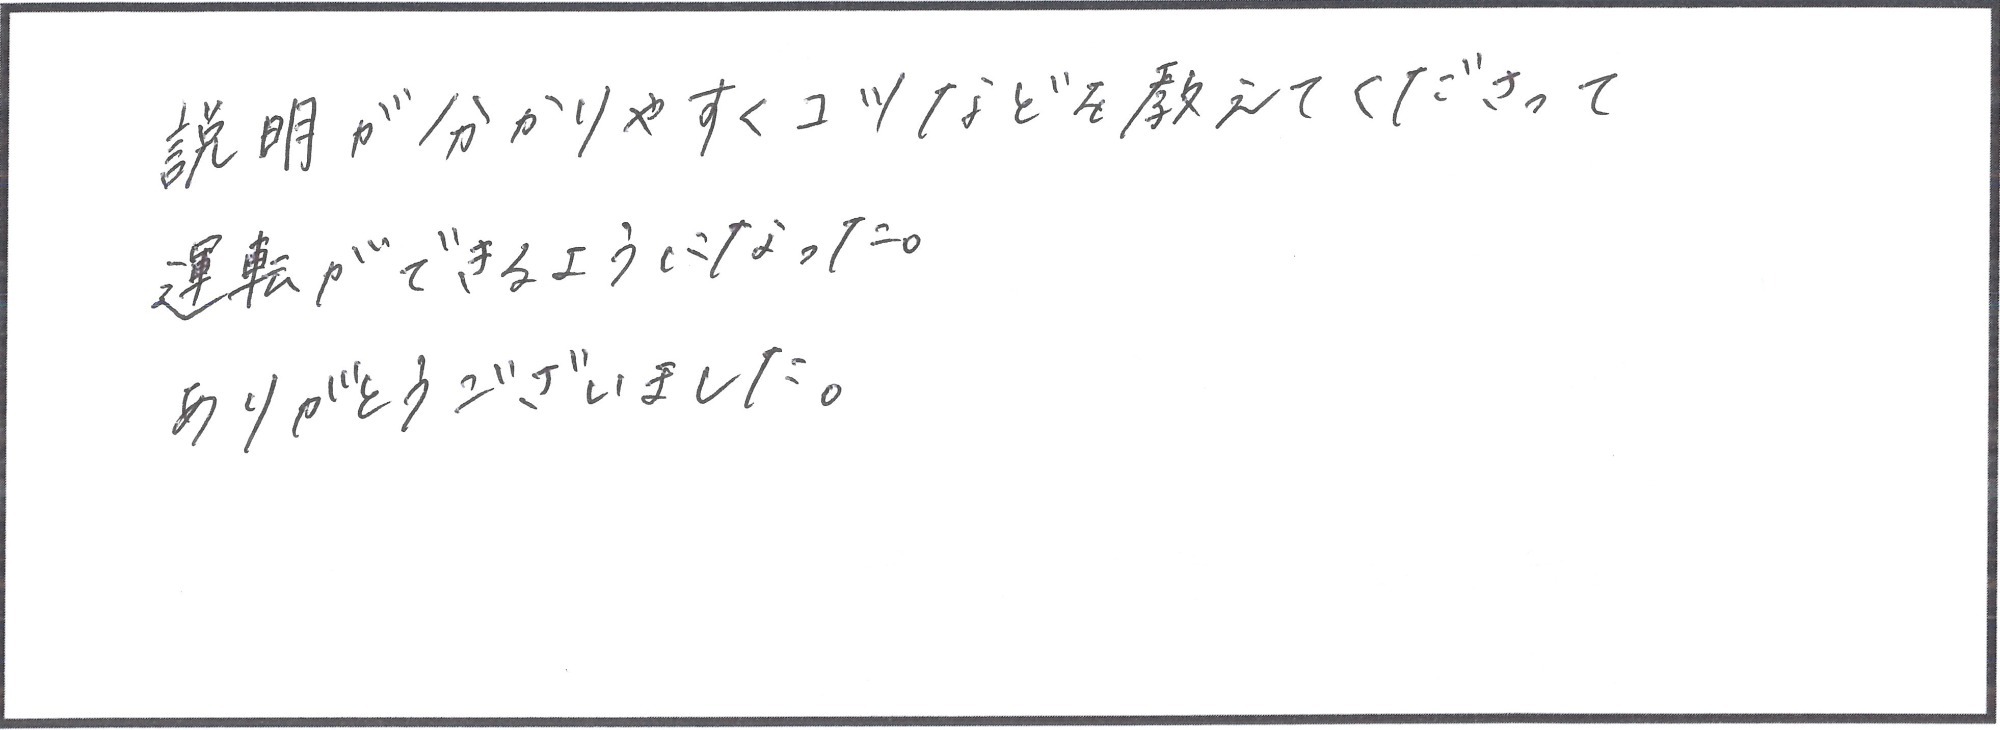 説明が分かりやすくコツなどを教えてくださって
運転ができるようになった。
ありがとうございました。